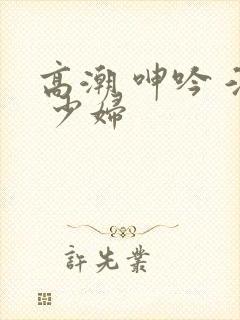 高潮 呻吟
少婦
許先業